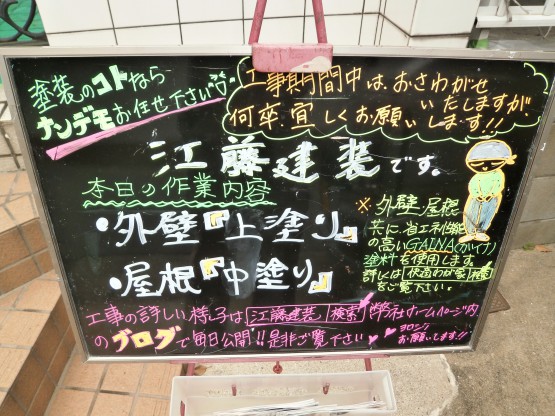 塗装のコトなら
ナンデモお任せ下さい
工事期間中は、おさわがせ
いたしますが、
何卒、宜しくお願いします!!
江藤建装です。
本日の作業内容
・外壁『上塗り』
・屋根『中塗り』
※外壁、屋根
共に、省エネ性能
の高いGAINA(ガイナ)
塗料を使用します。
詳しくは 快適わが家 検索
をご覧下さい。
工事の詳しい様子は 江藤建装 検索 弊社ホームページ内
のブログで毎日公開!!是非ご覧下さい
ヨロシク
お願いします!!